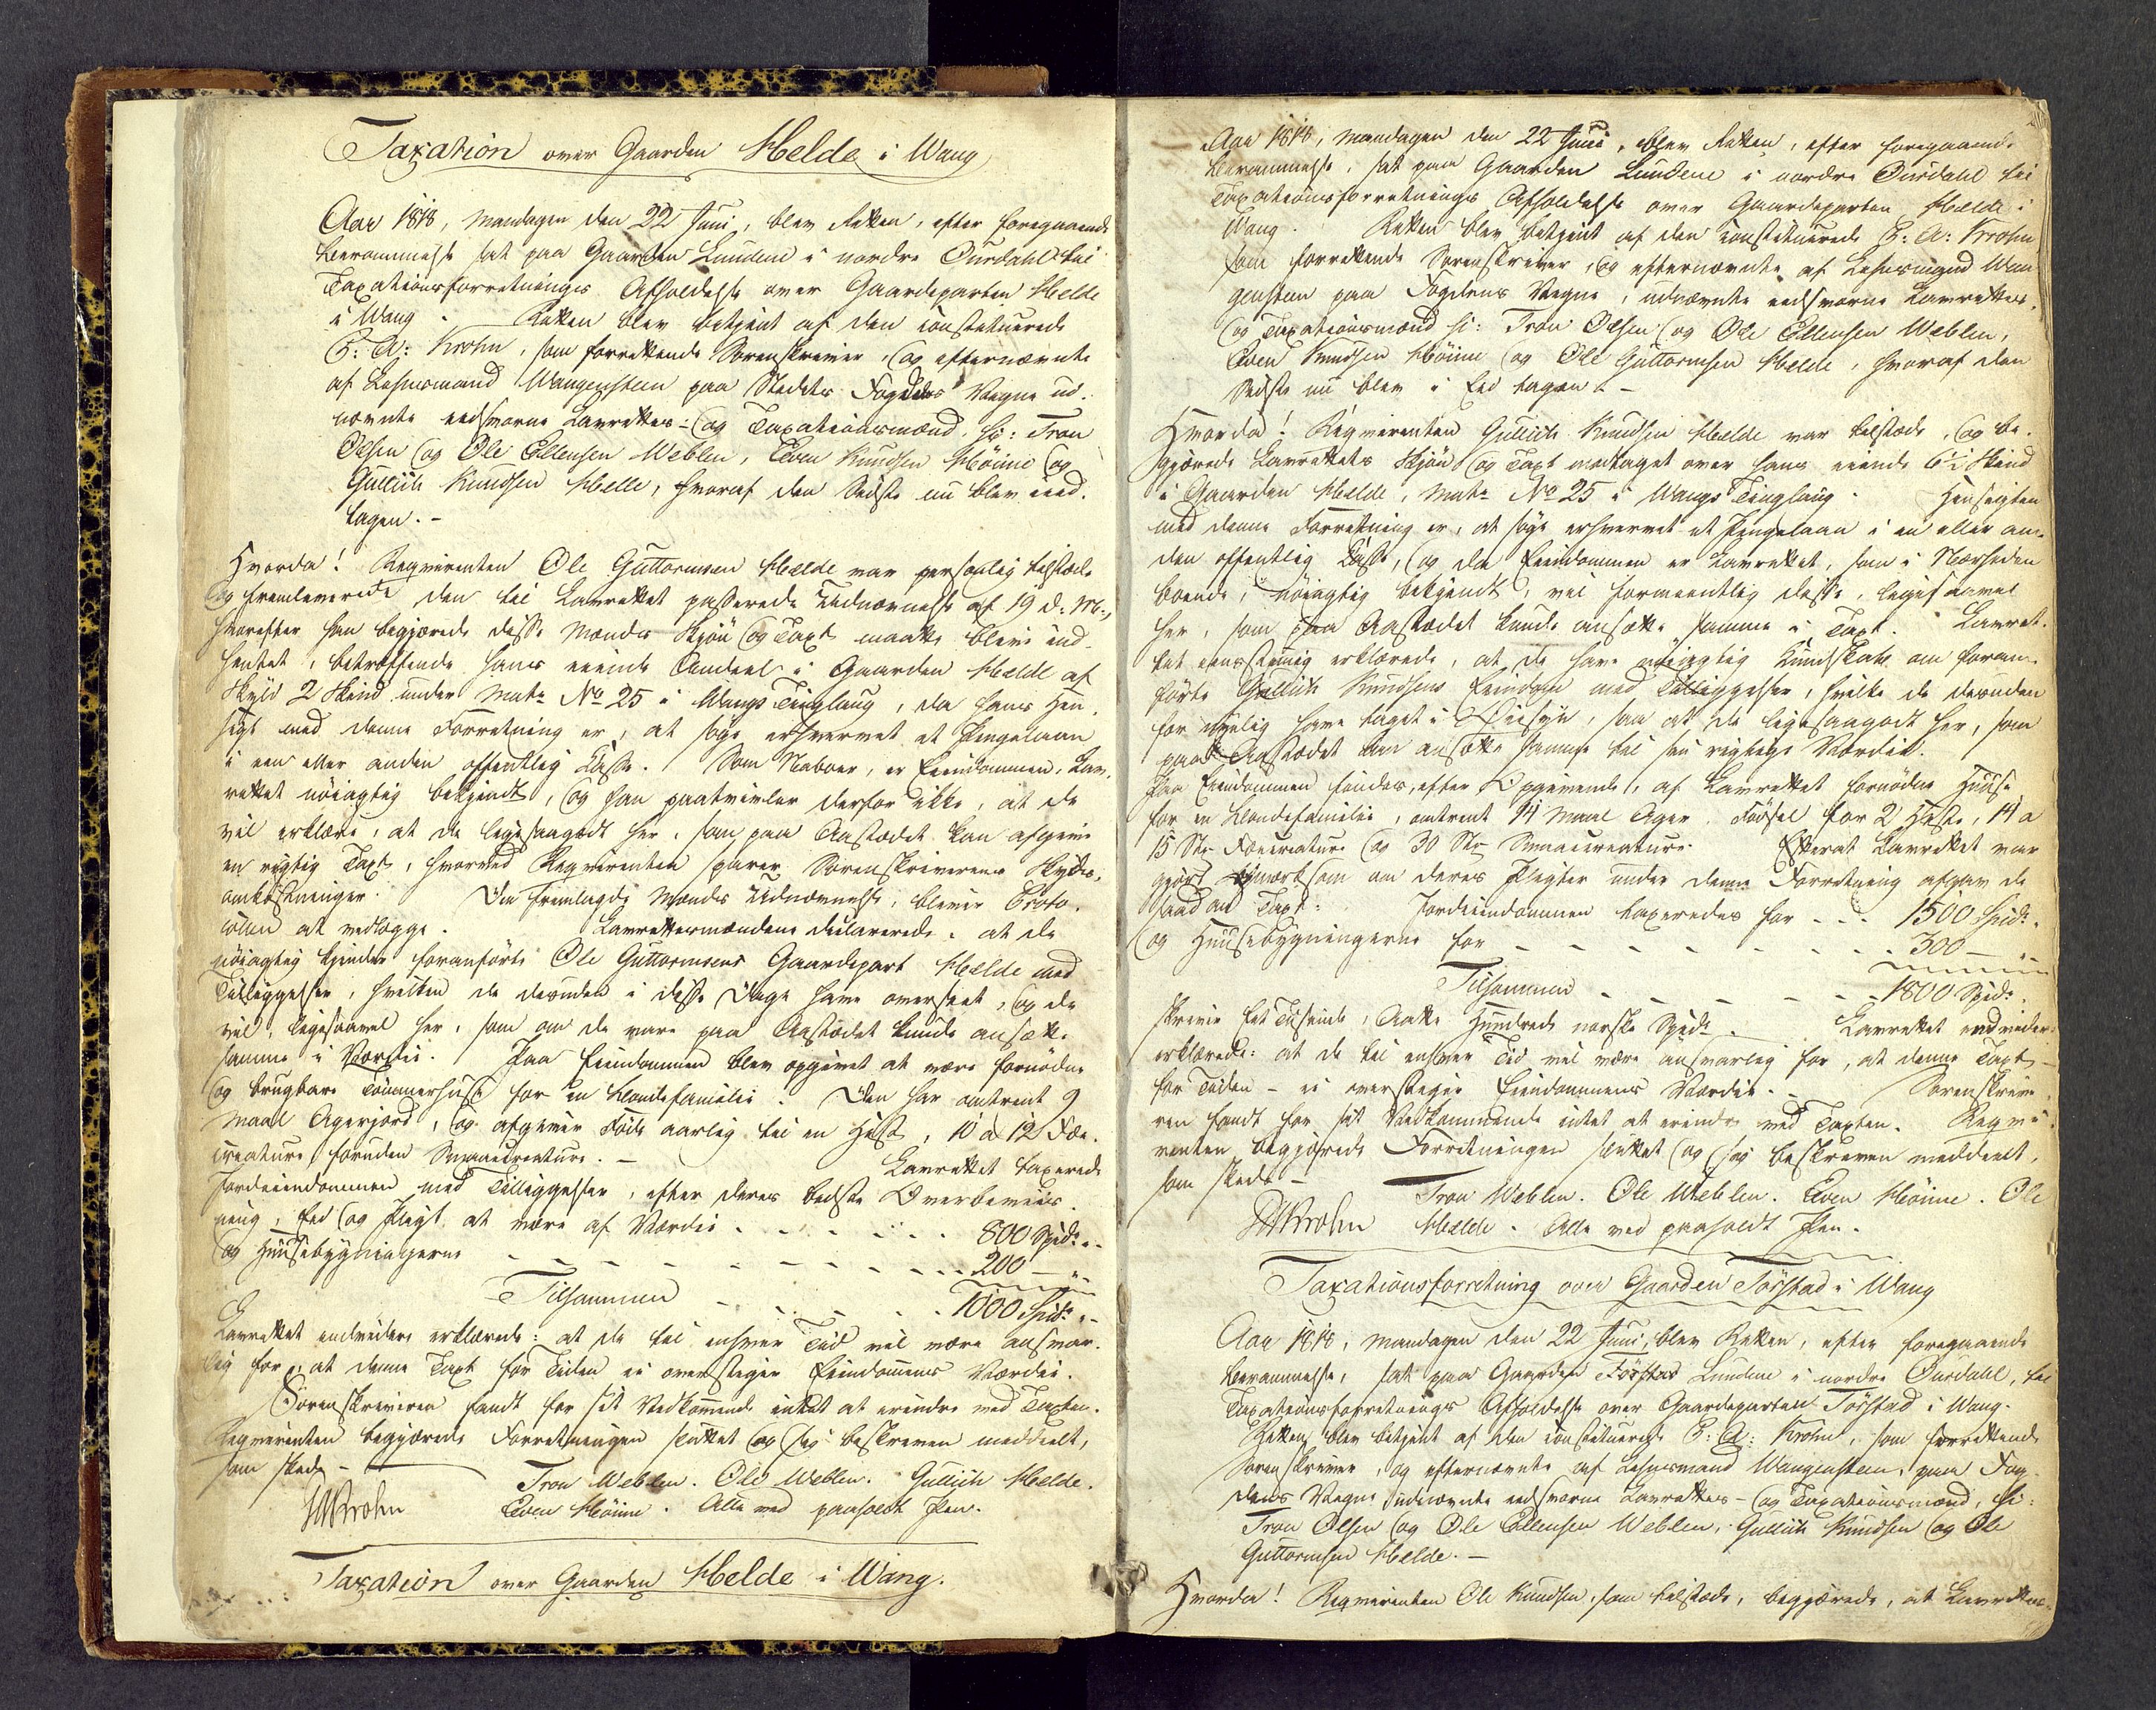 Taxation over Gaarden Helde i Wang
Aar 1818, mandagen den 22 Juni, blev Retten, efter foregaaende
Berammelse sat paa Gaarden Lundene i nordre Ourdahl til
Taxationsforretnings Afholdelse over Gaardeparten Helde
i Wang. Retten blev betjent af den constituerede
P: A: Krohn, som forrettende Sorenskriver, og efternævnte
af Lehnsmand Wangensteen paa Stedets Fogdes Vegne ud-
nævnte eedsvorne Laurettes- og Taxationsmænd, s: Tron
Olsen og Ole Ellensen Weblen, Even Knudsen Høine og
Gullich Knudsen Helle, hvoraf den Sidste nu blev eed-
tagen. -
Hvorda! Reqvirenten Ole Guttormsen Helde var personlig tilstæde
og fremleverede den til Laurettet passerede Udnævnelse af 19 d: M:,
hvorefter han begjærede disse Mænds Skjøn og Taxt maatte blive ind-
hentet, betræffende hans eiende Andeel i Gaarden Helde af
Skyld 2 Skind under Matr. No 25 i Wangs Tinglaug, da hans Hen-
sigt med denne Forretning er, at søge erhvervet et Pengelaan
i een eller anden offentlig Casse. Som Naboer, er Eiendommen, Lau-
rettet nøiagtig bekjendt, og han paatvivler derfor ikke, at de
vil erklære, at de ligesaagodt her, som paa Aastædet kan afgive
en rigtig Taxt, hvorved Reqvirenten sparer Sorenskriverens Skyds-
omkostninger. Den fremlagde Mænds Udnævnelse, bliver Proto-
collen at vedlægge. Laurettesmændene declarerede: at de
nøiagtig kjender foranførte Ole Guttormsens Gaardepart Helde med
Tilliggelser, hvilken de desuden i disse Dage have overseet, og de
vil, ligesaavel her, som om de vare paa Aastædet kunde ansætte
samme i Værdie. Paa Eiendommen blev opgivet at være fornødne
og brugbare Tømmerhuse for en Bondefamilie. Den har omtrent 9
Maal Agerjord, og afgiver Foder aarlig til en Hest, 10 à 12 Fæ-
creature, foruden Smaaecreature. - Laurettet taxerede
Jordeiendommen med Tilliggelser, efter deres bedste Overbeviis-
ning, Eed og Pligt at være af Værdie - - - 800 Spdr. -
og Huusebygningerne - - - 200 - "
Tilsammen - - - 1000 Spdr. -
Laurettet endvidere erklærede: at de til enhver Tiid vil være ansvar-
lig for, at denne Taxt for Tiden ei overstiger Eiendommens Værdie.
Sorenskriveren fandt for sit Vedkommende intet at erindre ved Taxten.
Reqvirenten begjærede Forretningen sluttet og sig beskreven meddeelt,
som skede - Tron Weblen. Ole Weblen. Gullich Helde.
PAKrohn Even Høine. Alle ved paaholdt Pen.
Taxation over Gaarden Helde i Wang.
Aar 1818, Mandagen den 22 Juni, blev Retten, efter foregaaende
Berammelse, sat paa Gaarden Lundene i nordre Ourdahl til
Taxationsforretnings Afholdelse over Gaardeparten Helde i
Wang. Retten blev betjent af den constituerede P: A: Krohn
som forrettende Sorenskriver, og efternævnte af Lehnsmand Wan-
gensteen paa Fogdens Vegne, udnævnte eedsvorne Laurettes-
og Taxationsmænd s: Tron Olsen og Ole Ellensen Weblen,
Even Knudsen Høine og Ole Guttormsen Helde, hvoraf den
Sidste nu blev i Eed tagen. -
Hvorda! Reqvirenten Gullich Knudsen Helde var tilstæde, og be-
gjærede Laurettets Skjøn og Taxt modtaget over hans eiende 6½ Skind
i Gaarden Helde, Matr. No 25 i Wangs Tinglaug. Hensigten
med denne Forretning er, at søge erhvervet et Pengelaan i en eller an-
den offentlig Casse, og da Eiendommen er Laurettet, som i Nærheden
boende, nøiagtig bekjendt, vil formeentlig disse, ligesaavel
her, som paa Aastædet kunde ansætte samme i Taxt. Lauret-
tet eensstemmig erklærede, at de have nøiagtig Kundskab om foran-
førte Gullich Knudsens Eiendom med Tilliggelser, hvilke de desuden
for nylig have taget i Øiesyn, saa at de ligesaagodt her, som
paa Aastædet kan ansætte samme til sin rigtige Værdie.
Paa Eiendommen findes, efter Opgivende, af Laurettet fornødne Huuse
for en Bondefamilie, omtrent 14 Maal Ager. Fødsel for 2 Heste, 14 a
15 Str Fæecreature og 30 Str Smaaecreature. Efterat Laurettet var
gjort opmærksom om deres Pligter under denne Forretning afgav de
saadan Taxt: Jordeiendommen taxeredes for - - - 1500 Spdr.
og Huusebygningerne for - - - 300 - "
Tilsammen - - - 1800 Spdr.
skriver Eet Tusinde, Aatte Hundrede norske Spdr. Laurettet endvidere
erklærede: at de til enhver Tid vil være ansvarlig for, at denne Taxt -
for Tiden - ei overstiger Eiendommens Værdie. - Sorenskrive-
ren fandt for sit Vedkommende intet at erindre ved Taxten. Reqvi-
renten begjærede Forretningen sluttet og sig beskreven meddeelt,
som skede - Tron Weblen. Ole Weblen. Even Høine. Ole
PAKrohn Helde. Alle ved paaholdt Pen.
Taxationsforretning over Gaarden Tørstad i Wang
Aar 1818, Mandagen den 22 Juni, blev Retten, efter foregaaende
Berammelse, sat paa Gaarden Tørstad Lundene i nordre Ourdahl, til
Taxationsforretnings Afholdelse over Gaardeparten Tørstad i Wang.
Retten blev betjent af den constituerede P: A: Krohn, som forrettende
Sorenskriver, og efternævnte af Lehnsmand Wangensteen, paa Fog-
dens Vegne udnævnte eedsvorne Laurettes- og Taxationsmænd, s:
Tron Olsen og Ole Ellensen Weblen, Gullich Knudsen og Ole
Guttormsen Helde. -
Hvorda! Reqvirenten Ole Knudsen, som tilstæde, begjærede, at Laurettes-